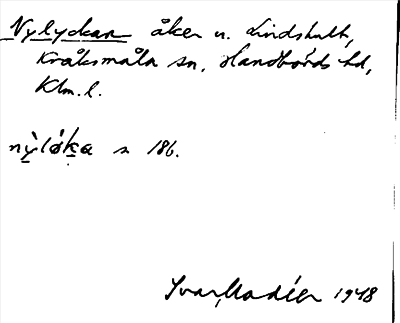 Nylyckan åker u. Lindshult,
Kråksmåla sn, Handbörds hd,
Klm. l.
nỳlóka s 186.
Ivar Modéer 1948